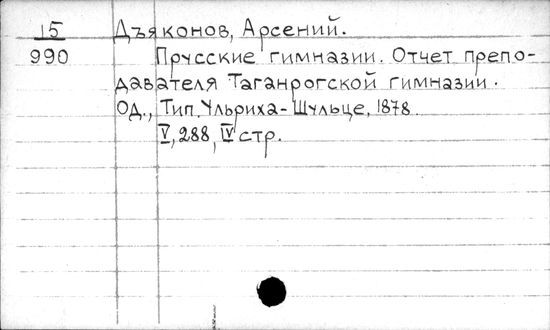 15 Дъяконов, Арсений.
990 Прусские гимназии. Отчет препо-
давателя Таганрогской гимназии.
Од., Тип. Ульриха-Шульце, 1878.
V, 288, IV стр.